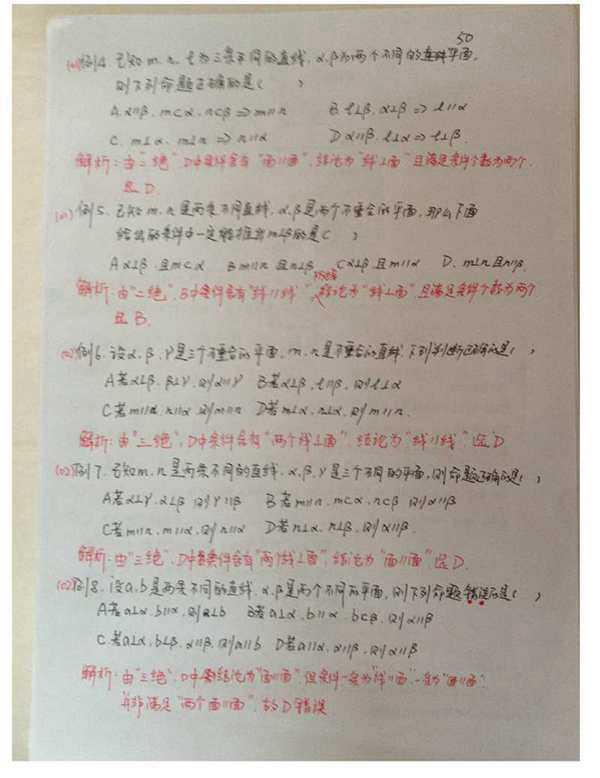 50
(01)例4. 已知m、n、l为三条不同的直线，α、β为两个不同的平面，
则下列命题正确的是（ ）
A.α∥β，m⊂α，n⊂β⇒m∥n B.l⊥β，α⊥β⇒l∥α
C.m⊥α，m⊥n⇒n∥α D α∥β，l⊥α⇒l⊥β.
解析：由"二绝"，D中条件含有"面∥面"，结论为"线⊥面"且满足条件个数为两个.
选D.
(01)例5. 已知m、n是两条不同直线，α、β是两个不重合的平面，那么下面
给出的条件中一定能推出m⊥β的是（ ）
A α⊥β，且m⊂α B m∥n且n⊥β C α⊥β且m∥α D、m⊥n且n∥β.
解析：由"二绝"，B中条件含有"线∥线"，结论为"线⊥面"且满足条件个数为两个
且B.
(02)例6. 设α、β、γ是三个不重合的平面，m、n是不重合的直线，下列判断正确的是（ ）
A若α⊥β，β⊥γ，则α∥γ B若α⊥β，l∥β，则l⊥α
C若m∥α，n∥α，则m∥n D若m⊥α，n⊥α，则m∥n.
解析：由"三绝"，D中条件含有"两个线⊥面"，结论为"线∥线"，选D
(02)例7. 已知m、n是两条不同的直线，α、β、γ是三个不同的平面，则命题正确的是（ ）
A若α⊥γ，α⊥β，则γ∥β B若m∥n，m⊂α，n⊂β，则α∥β
C若m∥n，m∥α，则n∥α D若n⊥α，n⊥β，则α∥β.
解析：由"三绝"，D中条件含有"两个线⊥面"，结论为"面∥面"，选D.
(02)例8. 设a、b是两条不同的直线，α、β是两个不同的平面，则下列命题错误的是（ ）
A若a⊥α，b∥α，则a⊥b B若a⊥α，b∥a，b⊂β，则α⊥β
C.若a⊥α，b⊥β，α∥β，则a∥b D若a∥α，a∥β，则α∥β
解析：由"三绝"，D中结论为"面∥面"，但条件一条为"线∥面"，一条为"面∥面"
并非满足"两个面∥面"，故D错误.